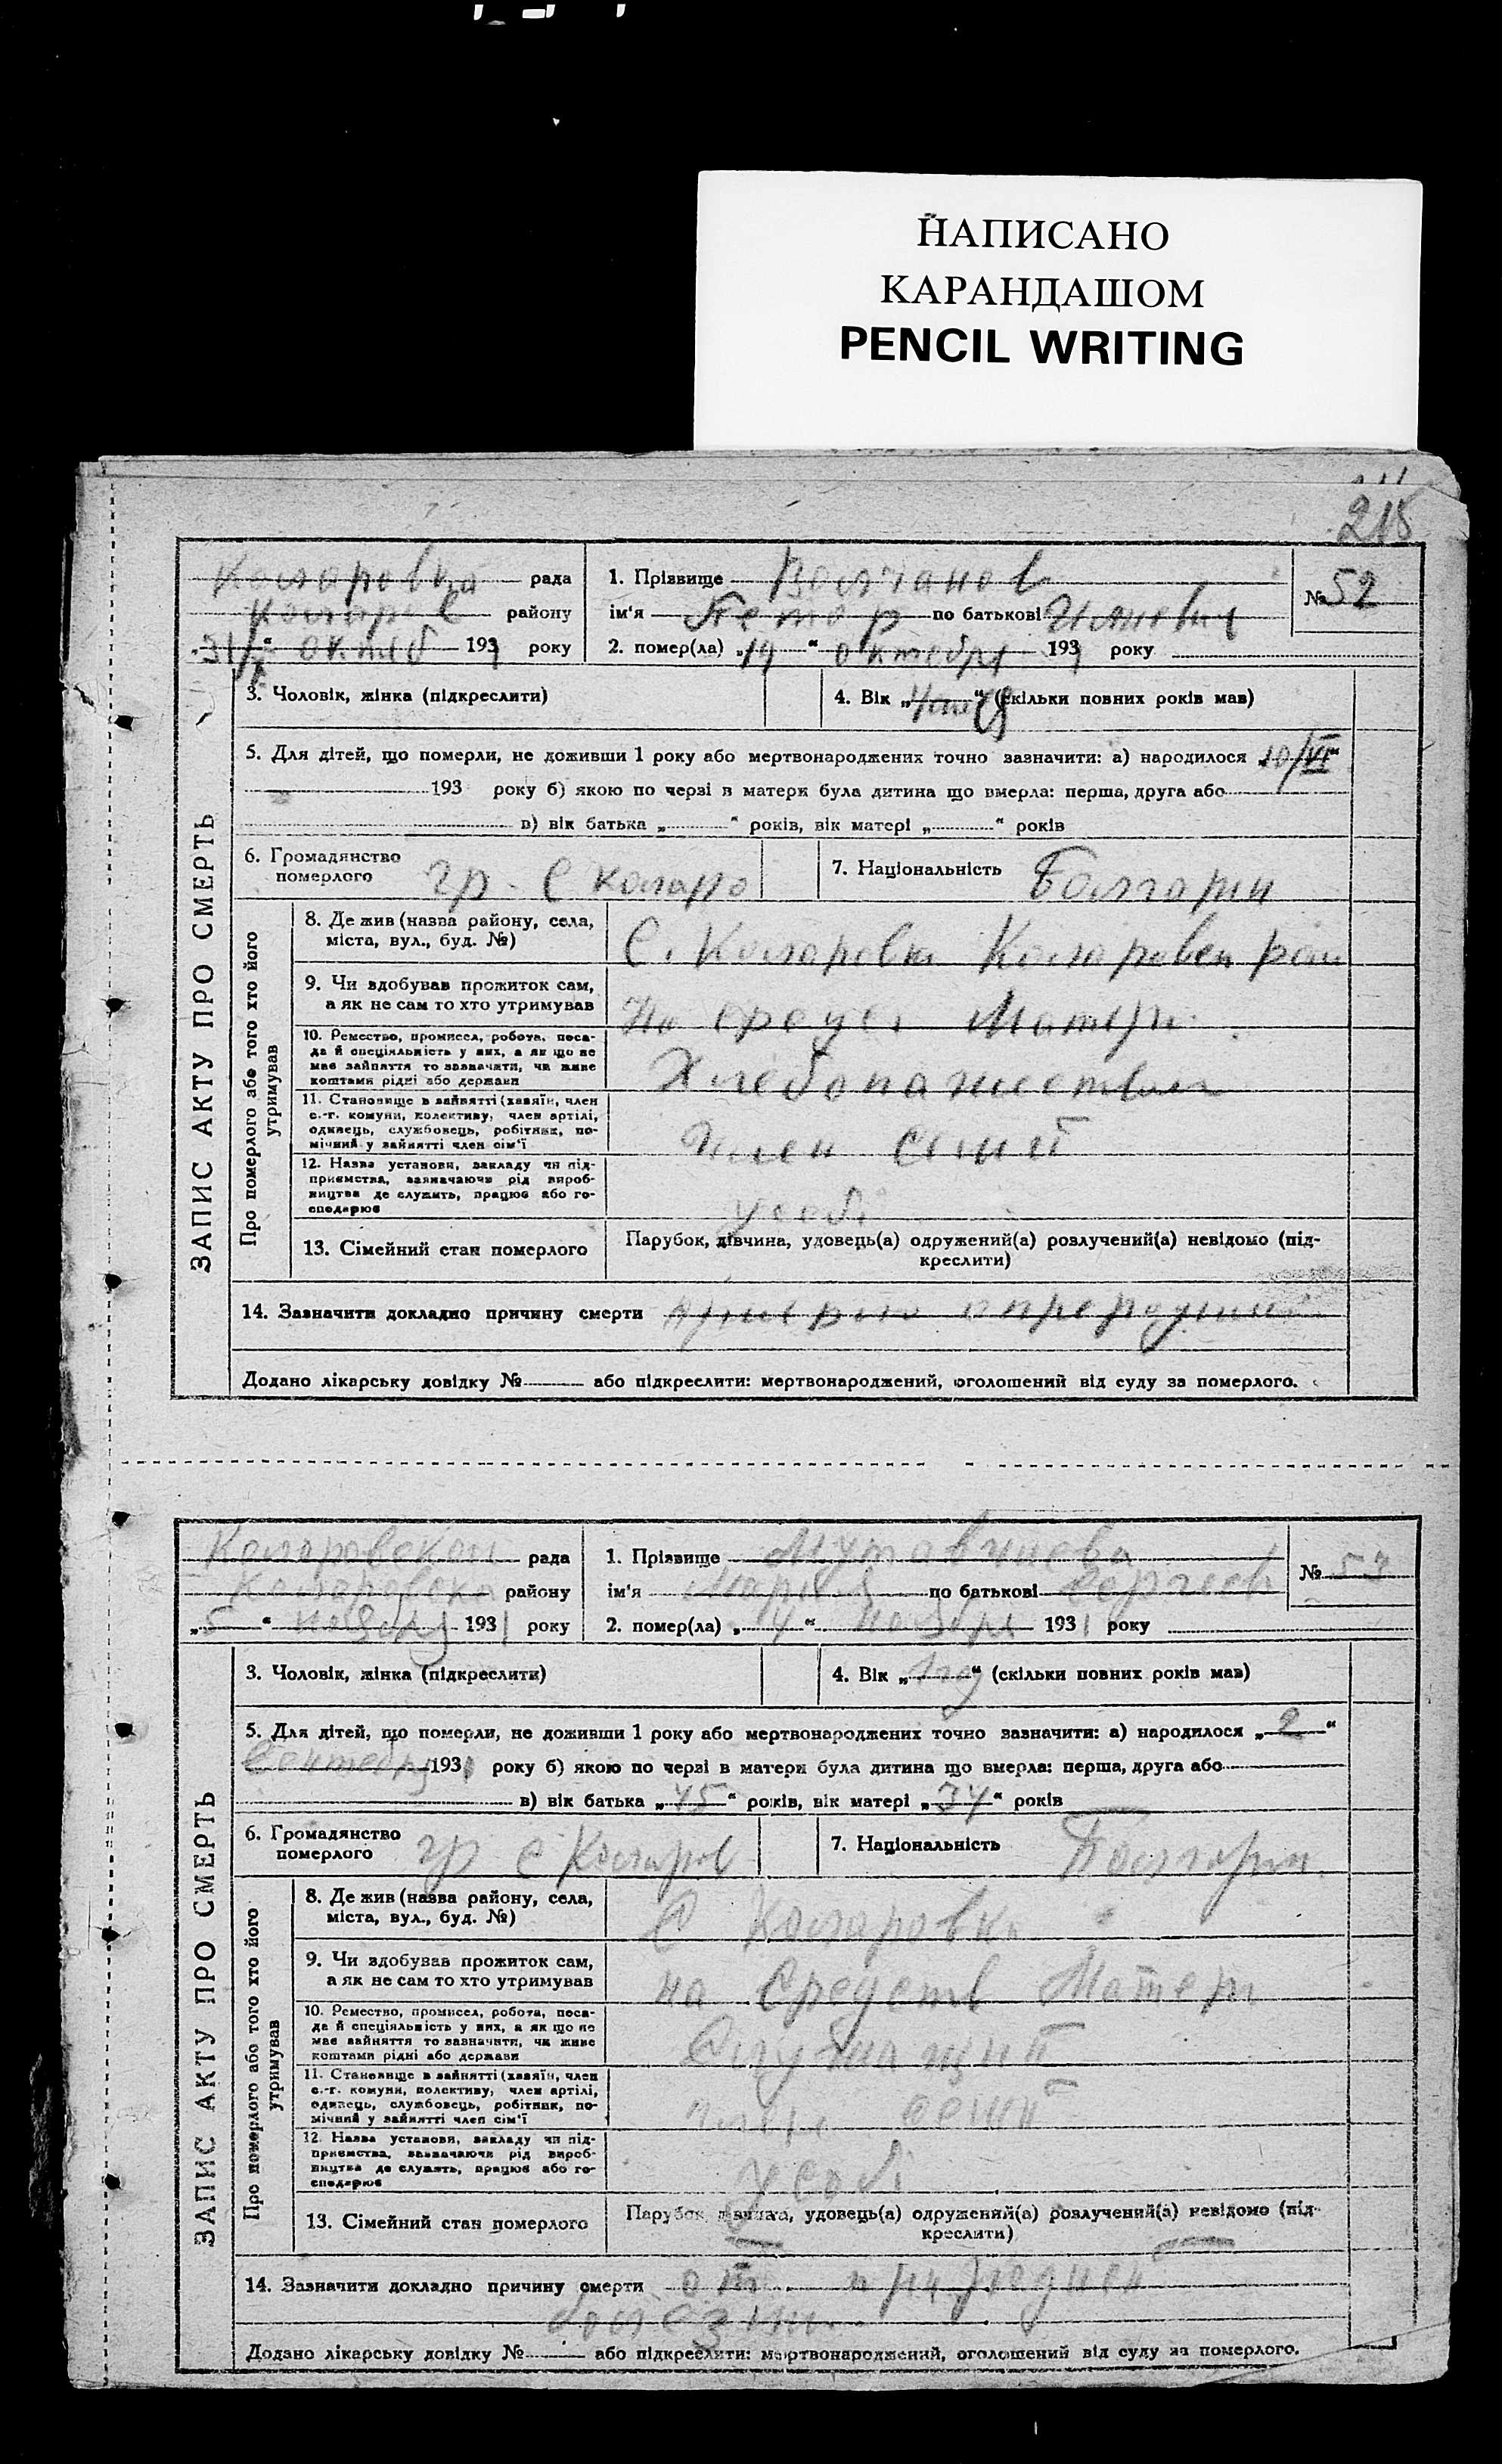 НАПИСАНО
КАРАНДАШОМ
PENCIL WRITING
215
ЗАПИС АКТУ ПРО СМЕРТЬ
Коларовка рада
Колар район району
31/X Октяб 1931 року
1. Прізвище Волчанов
ім'я Петор по батькові
№ 52
2. помер(ла) „19“ октября 1931 року
3. Чоловік, жінка (підкреслити)
4. Вік „4 мец“ (скільки повних років мав)
5. Для дітей, що померли, не доживши 1 року або мертвонароджених точно зазначити: а) народилося „10/VI“
193 року б) якою по черзі в матери була дитина що вмерла: перша, друга або
в) вік батька „ “ років, вік матері „ “ років
6. Громадянство померлого гр. с Коларо
7. Національність Болгарин
Про померлого або того хто його утримував
8. Де жив (назва району, села, міста, вул., буд. №) С. Коларовка Коларовск рай
9. Чи здобував прожиток сам, а як не сам то хто утримував На средст Матери
10. Ремество, промисел, робота, посада й спеціяльність у них, а як що не має зайняття то зазначити, чи живе коштами рідні або держави Хлебопашество
11. Становище в зайнятті (хазяїн, член с.-г. комуни, колективу, член артілі, одинець, службовець, робітник, помічний у зайнятті член сім'ї член семй
12. Назва установи, закладу чи підприємства, зазначаючи рід виробництва де служить, працює або господарює
13. Сімейний стан померлого Парубок, дівчина, удовець(а) одружений(а) розлучений(а) невідомо (підкреслити)
14. Зазначити докладно причину смерти
Додано лікарську довідку № або підкреслити: мертвонароджений, оголошений від суду за померлого.
ЗАПИС АКТУ ПРО СМЕРТЬ
Коларовской рада
Коларовски району
„5“ ноября 1931 року
1. Прізвище Мутавчиева
ім'я Мария по батькові Георгиев
№ 53
2. помер(ла) „4“ ноября 1931 року
3. Чоловік, жінка (підкреслити)
4. Вік „1 год“ (скільки повних років мав)
5. Для дітей, що померли, не доживши 1 року або мертвонароджених точно зазначити: а) народилося „2“
Сентября 1930 року б) якою по черзі в матери була дитина що вмерла: перша, друга або
в) вік батька „45“ років, вік матері „34“ років
6. Громадянство померлого гр с Коларов
7. Національність Болгарин
Про померлого або того хто його утримував
8. Де жив (назва району, села, міста, вул., буд. №) С Коларовка
9. Чи здобував прожиток сам, а як не сам то хто утримував на Средств Матери
10. Ремество, промисел, робота, посада й спеціяльність у них, а як що не має зайняття то зазначити, чи живе коштами рідні або держави
11. Становище в зайнятті (хазяїн, член с.-г. комуни, колективу, член артілі, одинець, службовець, робітник, помічний у зайнятті член сім'ї член семй
12. Назва установи, закладу чи підприємства, зазначаючи рід виробництва де служить, працює або господарює
13. Сімейний стан померлого Парубок, дівчина, удовець(а) одружений(а) розлучений(а) невідомо (підкреслити)
14. Зазначити докладно причину смерти от
болезни
Додано лікарську довідку № або підкреслити: мертвонароджений, оголошений від суду за померлого.